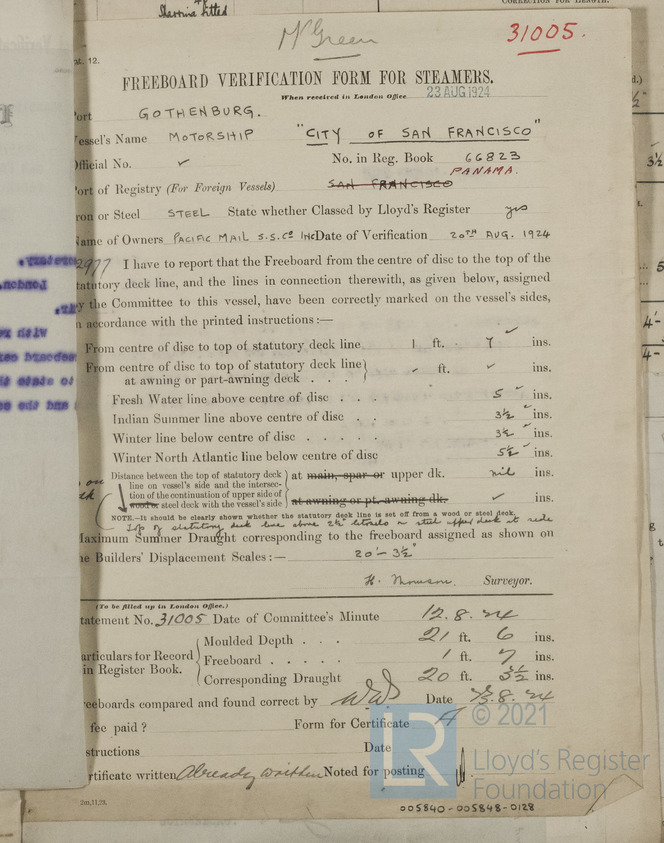 Sharring fitted
CORRECTION FOR LENGTH.
Mr Green
31005.
at. 12.
FREEBOARD VERIFICATION FORM FOR STEAMERS.
When received in London Office 23 AUG 1924
ort GOTHENBURG.
essel's Name MOTORSHIP "CITY OF SAN FRANCISCO"
fficial No. ✓ No. in Reg. Book 66823
PANAMA.
ort of Registry (For Foreign Vessels) SAN FRANCISCO
ron or Steel STEEL State whether Classed by Lloyd's Register yes
ame of Owners PACIFIC MAIL S.S. Co INC Date of Verification 20TH AUG. 1924
2977 I have to report that the Freeboard from the centre of disc to the top of the
tatutory deck line, and the lines in connection therewith, as given below, assigned
y the Committee to this vessel, have been correctly marked on the vessel's sides,
n accordance with the printed instructions:—
From centre of disc to top of statutory deck line 1 ft. 7 ✓ ins.
From centre of disc to top of statutory deck line } ✓ ft. ✓ ins.
at awning or part-awning deck . . .
Fresh Water line above centre of disc . . . 5 ✓ ins.
Indian Summer line above centre of disc . . 3½ ✓ ins.
Winter line below centre of disc . . . . . 3½ ✓ ins.
Winter North Atlantic line below centre of disc 5½ ✓ ins.
Distance between the top of statutory deck } at main, spar or upper dk. nil ins.
line on vessel's side and the intersec-
tion of the continuation of upper side of
wood or steel deck with the vessel's side } at awning or pt. awning dk. ✓ ins.
NOTE.—It should be clearly shown whether the statutory deck line is set off from a wood or steel deck.
Top of statutory deck line above 2½ on steel upper deck at side
Maximum Summer Draught corresponding to the freeboard assigned as shown on
he Builders' Displacement Scales:— 20'-3½"
Surveyor.
(To be filled up in London Office.)
tatement No. 31005 Date of Committee's Minute 12.8.24
articulars for Record
in Register Book.
Moulded Depth . . . 21 ft. 6 ins.
Freeboard . . . . . 1 ft. 7 ins.
Corresponding Draught 20 ft. 3½ ins.
reeboards compared and found correct by Date 23.8.24
fee paid ? Form for Certificate A
structions Date
rtificate written Already written Noted for posting
2m,11,23.
© 2021
LR
Lloyd's Register
Foundation
005840-005848-0128